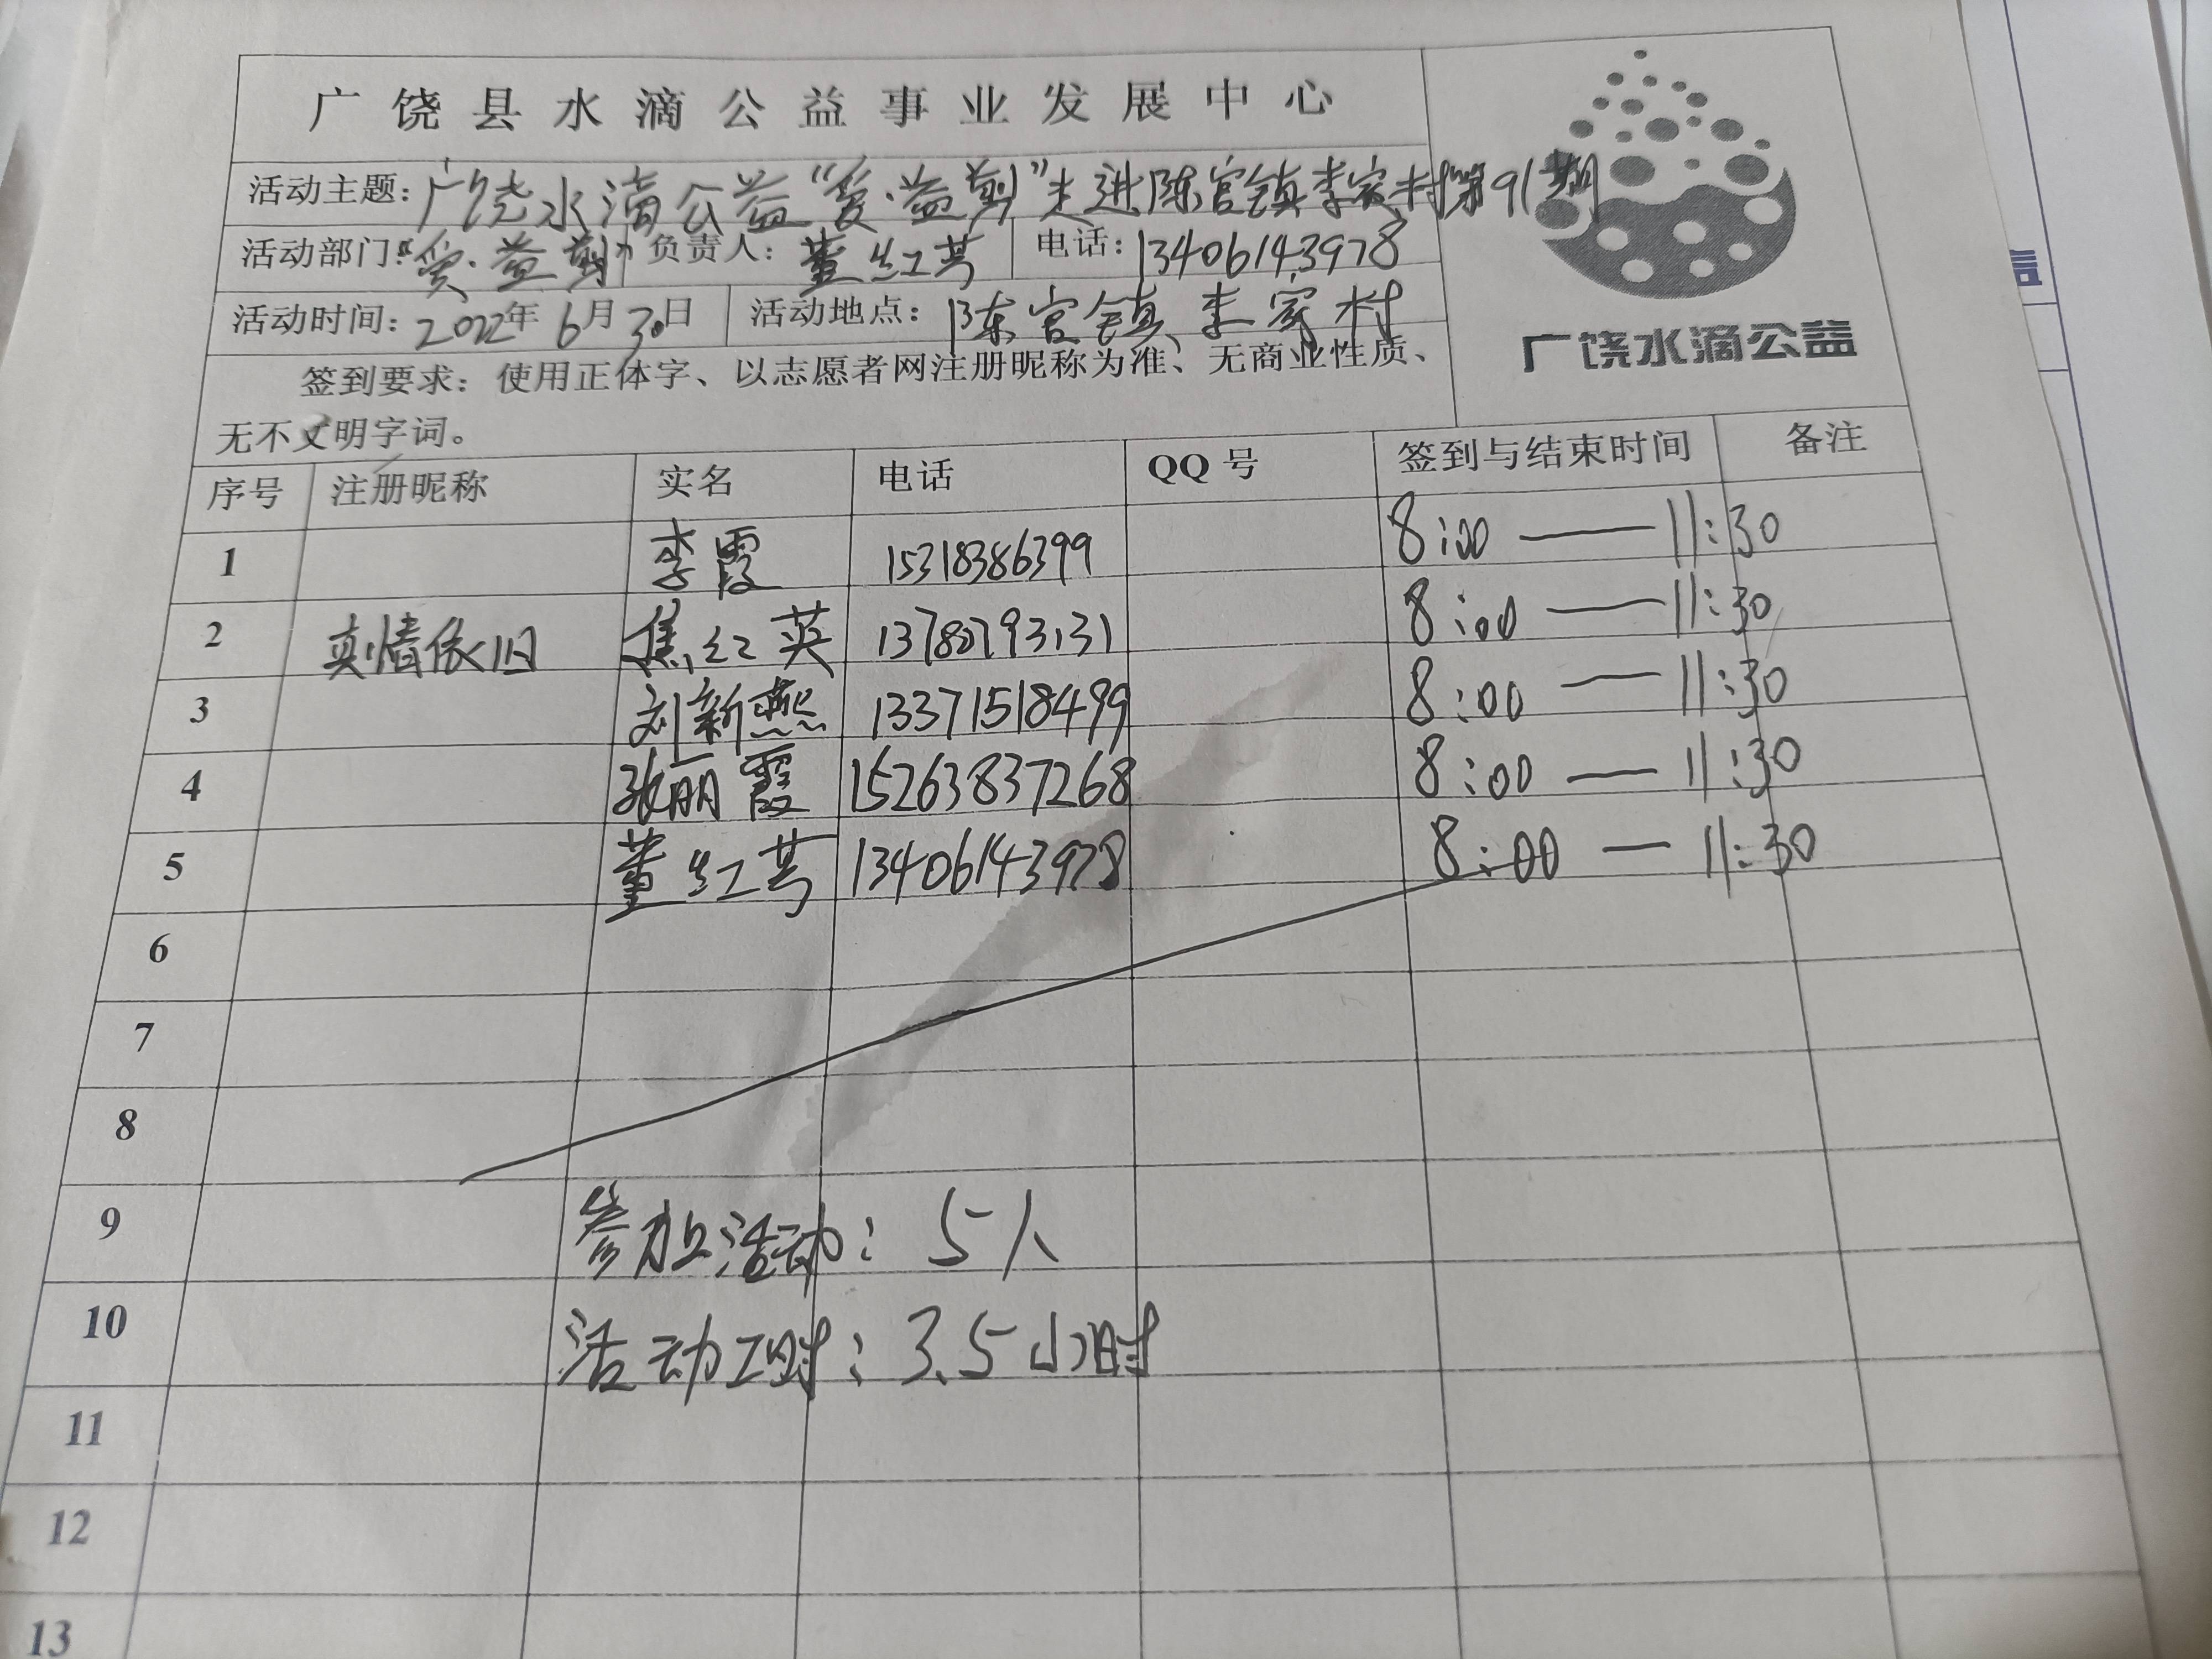 广饶县水滴公益事业发展中心
活动主题：广饶水滴公益“爱·益剪”走进陈官镇李家村第91期
活动部门：“爱·益剪” 负责人：董红芳 电话：13406143978
活动时间：2022年6月30日 活动地点：陈官镇李家村
广饶水滴公益
签到要求：使用正体字、以志愿者网注册昵称为准、无商业性质、
无不文明字词。
序号 注册昵称 实名 电话 QQ号 签到与结束时间 备注
1 李霞 15318386399 8:00——11:30
2 真情依旧 焦红英 13780793131 8:00——11:30
3 刘新燕 13371518499 8:00——11:30
4 张丽霞 15263837268 8:00——11:30
5 董红芳 13406143978 8:00—11:30
6
7
8
9 参加活动：5人
10 活动工时：3.5小时
11
12
13